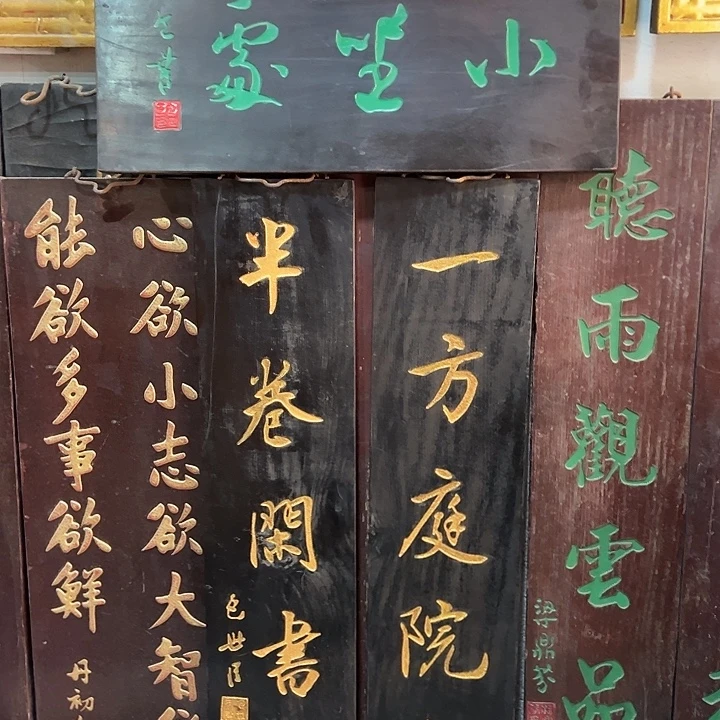 小坐處
聽雨觀雲品
梁鼎芬
一方庭院
半卷閑書
包世臣
心欲小志欲大智欲
能欲多事欲鮮
丹初